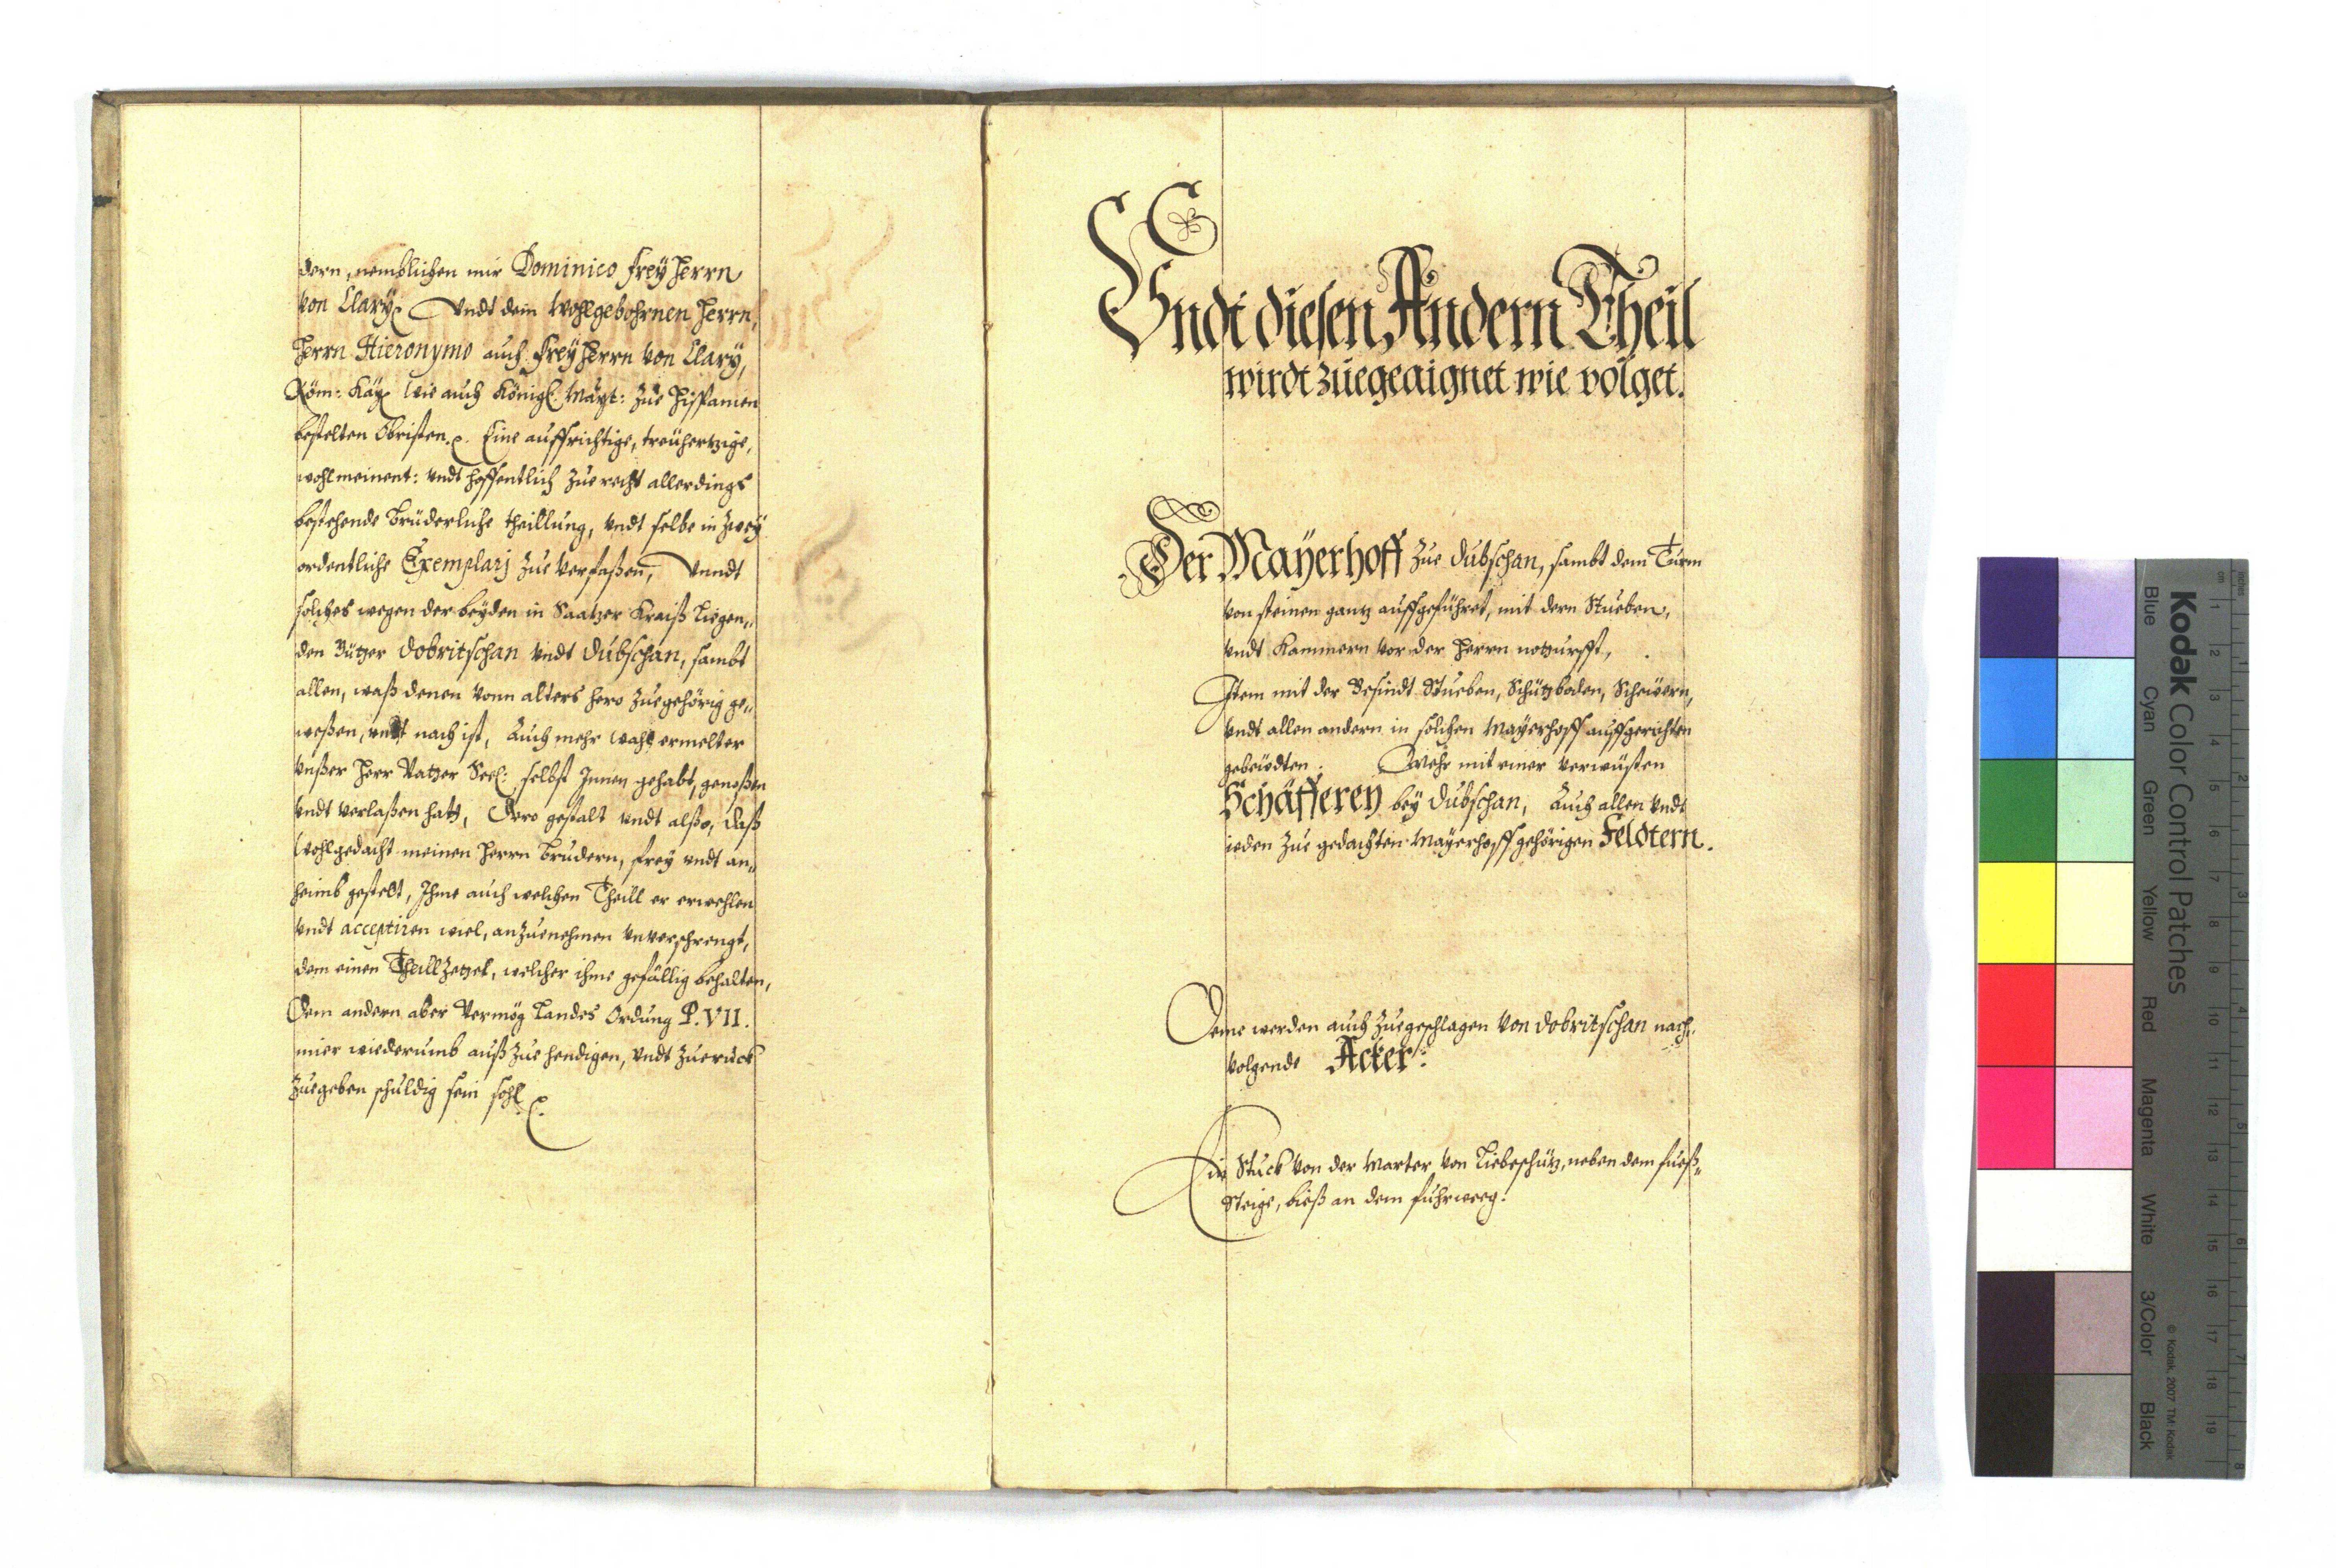 dern, nemblichen mir Dominico Freÿherrn
von Clarÿ Vndt dem Wohlgebohrnen Herrn,
Herrn Hieronymo auch Freÿherrn von Clarÿ,
Röm: Kaÿ: wie auch Königl: Maÿt: zue Hispanien
bestelten Obristen. Eine auffrichtige, treühertzige,
wohlmeinent: vndt hoffentlich zue recht allerdings
bestehende Brüderliche theillung, vndt selbe in zweÿ
ordentliche Exemplarj zue verfaßen, Vnndt
solches wegen der beÿden in Saatzer Kraiß liegen„
den Gütter Dobritschan vndt Dubschan, sambt
allen, waß denen vonn alters hero zuegehörig ge„
weßen, vndt noch ist, Auch mehr wohl ermelter
vnßer Herr Vatter Seel: selbst Innen gehabt, genoßen
vndt verlaßen hatt, Dero gestalt vndt alßo, daß
Wohlgedacht meinen Herrn Brudern, freÿ vndt an„
heimb gestelt, Ihme auch welchen Theill er erwehlen
vndt acceptiren wiel, anzuenehmen vnverschrengt,
dem einen Theillzettel, welcher ihme gefällig behalten,
Dem andern aber Vermög Landes Ordung P. VII.
mier wiederumb auß zue hendigen, vndt zueruck
zuegeben schuldig sein sohl.
Vndt diesen Andern Theil
wirdt zuegeaignet wie volget.
Der Maÿerhoff zue Dubschan, sambt dem Turm
von steinen gantz auffgeführet, mit dern Stueben,
vndt Kammern vor der Herrn notturfft,
Item mit der Gesindt Stueben, Schütboden, Scheüern,
vndt allen andern in solchen Maÿerhoff auffgerichten
gebeüdten. Mehr mit einer verwüsten
Schäfferey beÿ Dubschan, Auch allen vndt
ieden zue gedachten Maÿerhoff gehörigen Feldtern.
Deme werden auch zuegeschlagen von Dobritschan nach„
volgende Äcker:
Ein Stuck von der Marter von Liebeschütz, neben dem fueß„
Steige, bieß an dem fuhrweeg.
Kodak Color Control Patches
Blue Cyan Green Yellow Red Magenta White 3/Color Black
© Kodak, 2007 TM: Kodak
inches 1 2 3 4 5 6 7 8
cm 1 2 3 4 5 6 7 8 9 10 11 12 13 14 15 16 17 18 19